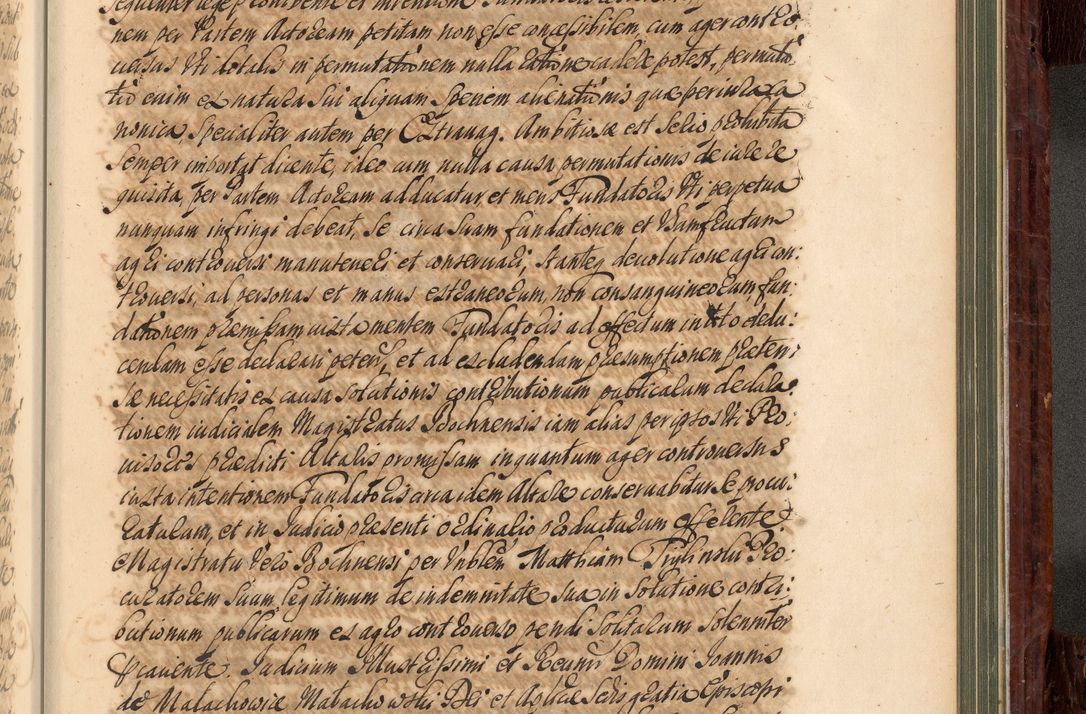 nem per Partem Actoream petitam non esse concessibilem, cum ager contro:
versus Uti dotalis in permutationem nulla ratione cadere potest, permuta:
tio enim ex natura sui aliquam speciem alienationis quæ per iura ca
nonica, specialiter autem per Extravag. Ambitiosæ est serio prohibita
semper importat dicente, ideo cum nulla causa permutationis de iure re
quisita, per Partem Actoream adducatur, et mens Fundatoris Uti perpetua
nunquam infringi debeat, se circa suam fundationem et Usumfructum
agri controversi manuteneri et conservari, stante devolutione agri con:
troversi, ad personas et manus extraneorum, non consanguineorum, fun:
dationem præmissam iuxta mentem Fundatoris ad effectum in toto dedu:
cendam esse declarari petens, et ad excludendam præsumptionem præten:
sæ necessitatis ex causa solutionis contributionum publicarum declara:
tionem iudicialem Magistratus Bochnensis iam alias per ipsos Uti Pro:
visores prædicti Altaris promissam inquantum ager controversus
iuxta intentionem Fundatoris circa idem Altare conservabitur se procu:
raturam, et in Judicio præsenti ordinario producturum offerente
Magistratu Vero Bochnensi per Unblem Matthiam Trylinski Pro:
curatorem suum legitimum de indemnitate sua in solutione contri:
butionum publicarum ex agro controverso pendi solitarum solenniter
cavente. Judicium Illustrissimi et Domini Joannis
de Malachowice Malachowski Dei et Aplicæ Sedis gratia Episcopi